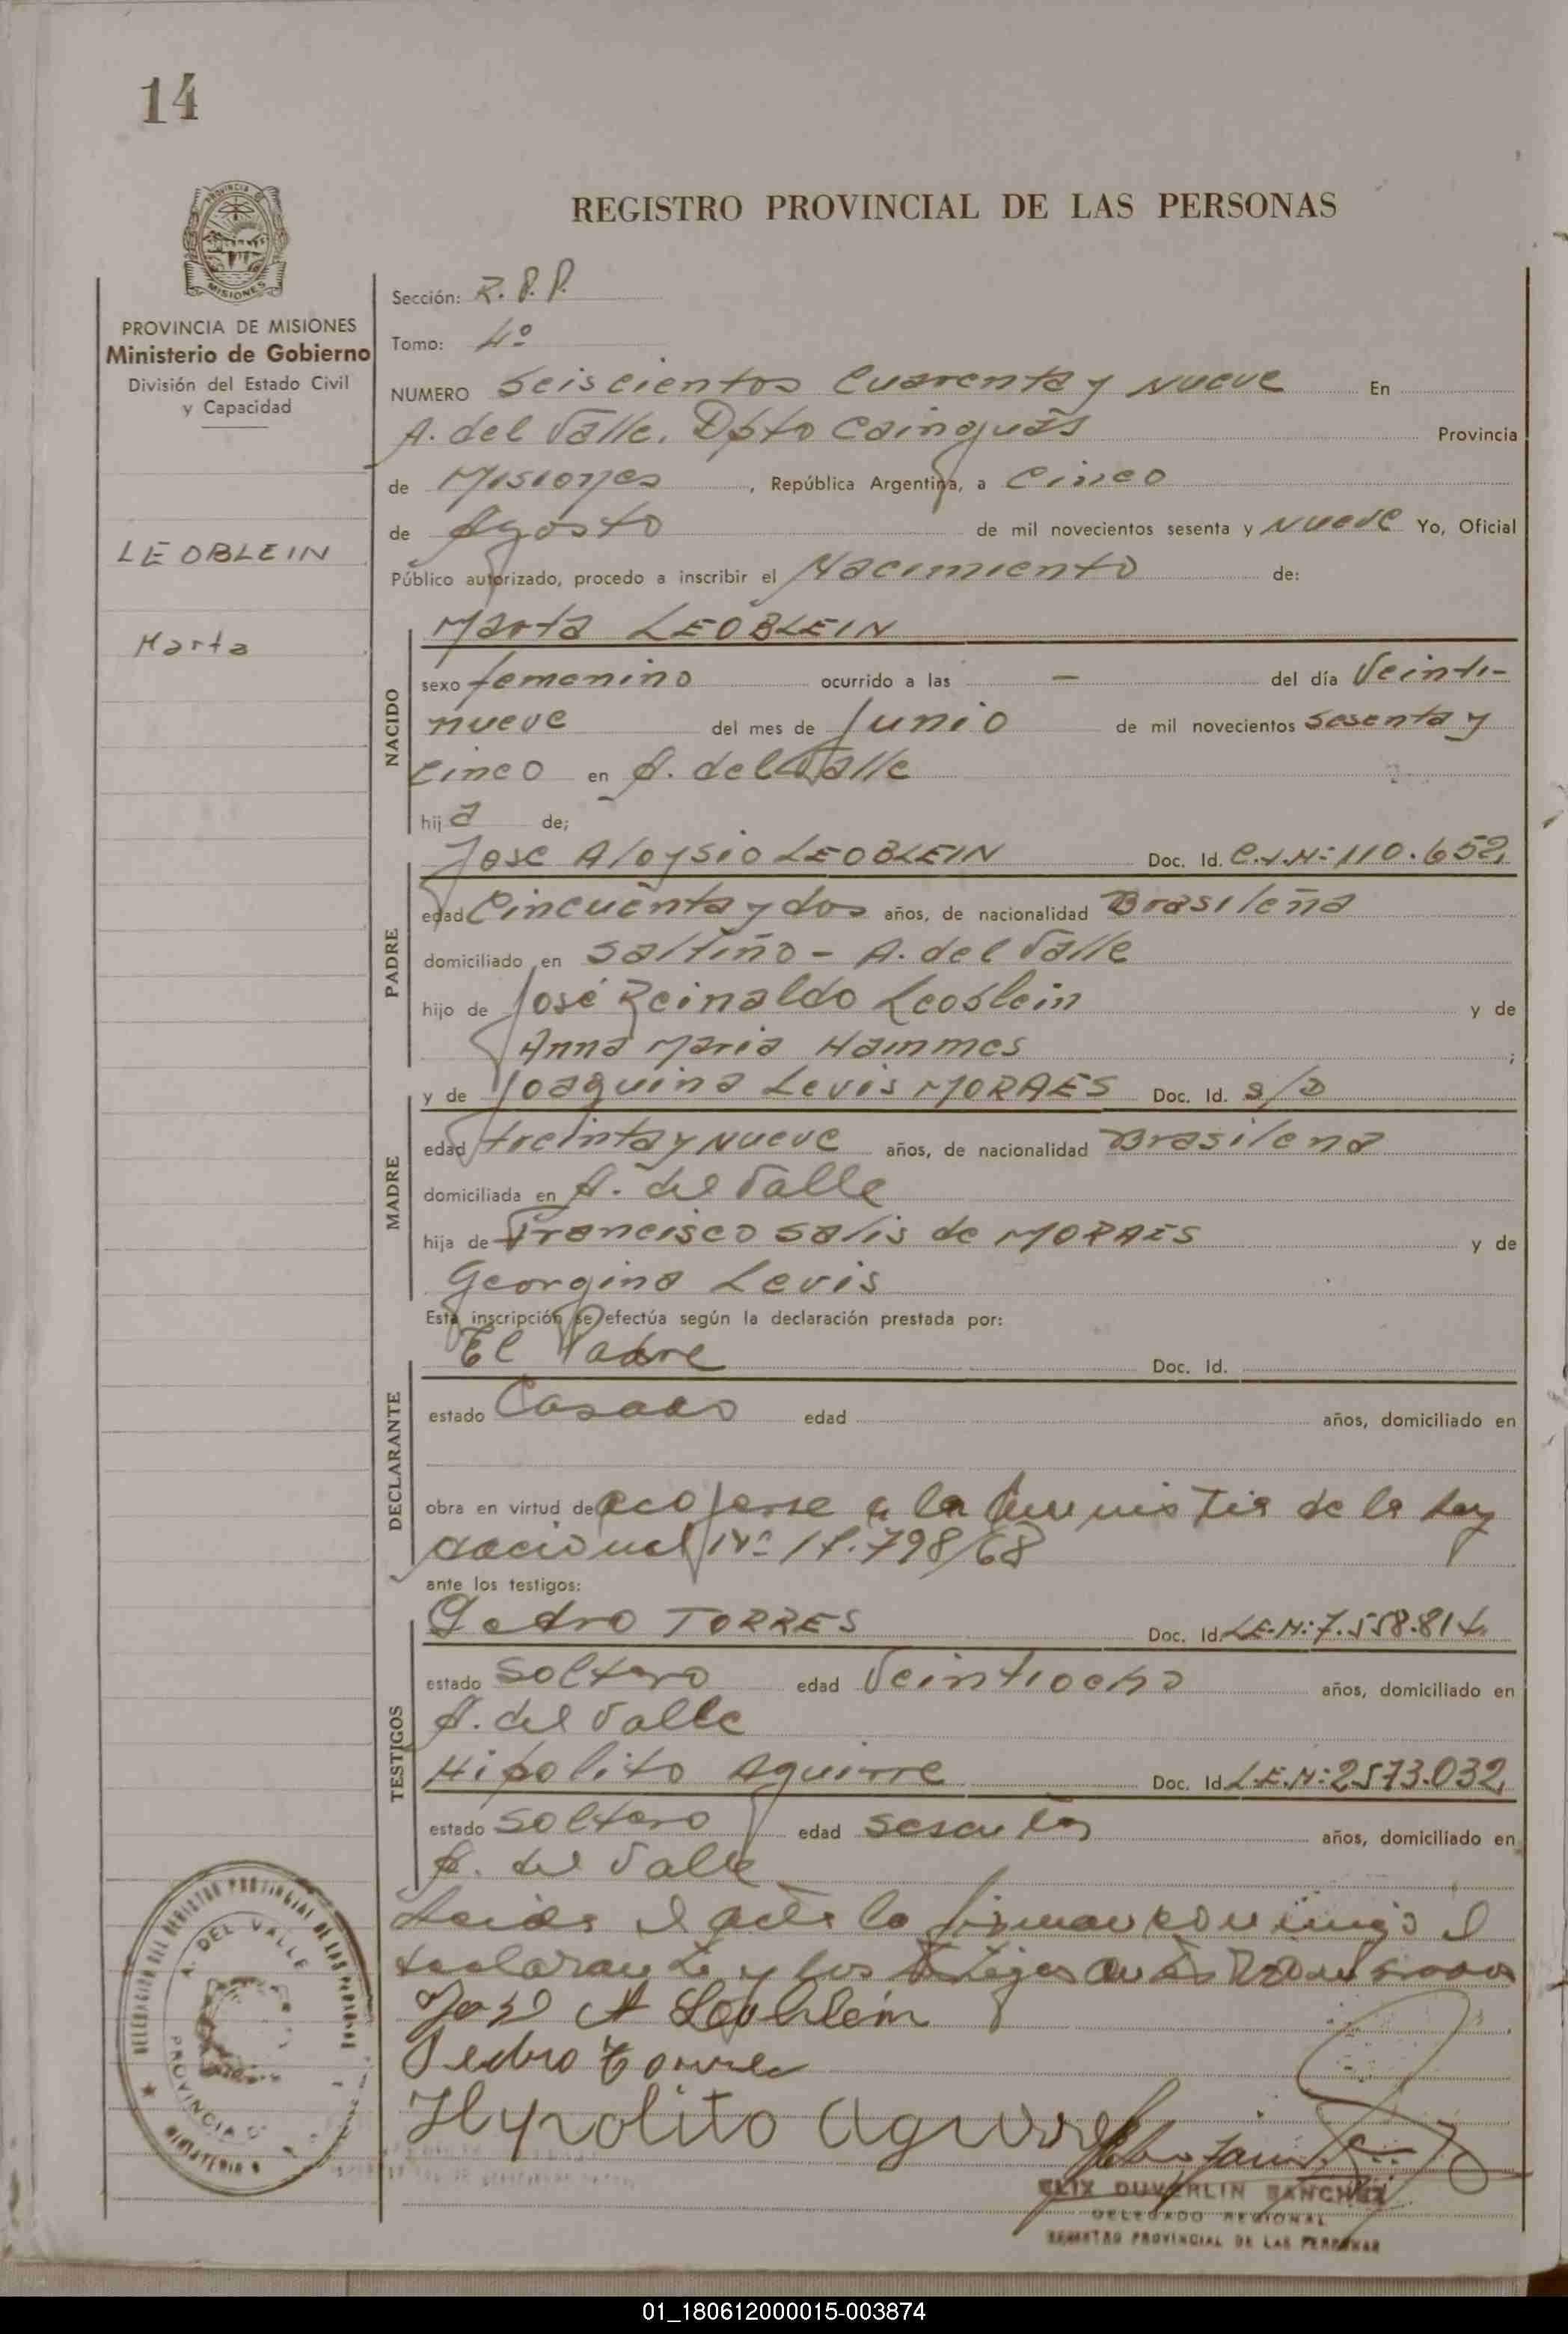 14
PROVINCIA DE MISIONES
Ministerio de Gobierno
División del Estado Civil
y Capacidad
LEOBLEIN
Marta
REGISTRO PROVINCIAL DE LAS PERSONAS
Sección: R.P.P.
Tomo: 4º
NUMERO Seiscientos Cuarenta y Nueve En
A. del Valle. Dpto Cainguás Provincia
de Misiones, República Argentina, a Cinco
de Agosto de mil novecientos sesenta y Nueve Yo, Oficial
Público autorizado, procedo a inscribir el Nacimiento de:
NACIDO
Marta LEOBLEIN
sexo femenino ocurrido a las — del día Veinti-
nueve del mes de Junio de mil novecientos Sesenta y
Cinco en A. del Valle
hija de;
PADRE
Jose Aloysio LEOBLEIN Doc. Id. C.I.N: 110.652,
edad Cincuenta y dos años, de nacionalidad Brasileña
domiciliado en Saltiño - A. del Valle
hijo de José Reinaldo Leoblein y de
Anna Maria Hammes;
MADRE
y de Joaquina Levis MORAES Doc. Id. S/D
edad treinta y Nueve años, de nacionalidad Brasilena
domiciliada en A. del Valle
hija de Francisco Salis de MORAES y de
Georgina Levis
Esta inscripción se efectúa según la declaración prestada por:
DECLARANTE
El Padre Doc. Id.
estado Casado edad años, domiciliado en
obra en virtud de acojerse a la Amnistia de la Ley
nacional Nº 17.798/68
ante los testigos:
TESTIGOS
Pedro TORRES Doc. Id. L.E.N: 7.558.814
estado Soltero edad Veintiocho años, domiciliado en
A. del Valle
Hipolito Aguirre Doc. Id. L.E.N: 2573.032,
estado Soltero edad Sesenta años, domiciliado en
A. del Valle
Leida el acta la firman conmigo el
declarante y los testigos
José A Leoblein
Pedro Torres
Hypolito Aguirre
DELEGACION DEL REGISTRO PROVINCIAL DE LAS PERSONAS
A. DEL VALLE
PROVINCIA
MINISTERIO
ELIX DUVERLIN SANCHEZ
DELEGADO REGIONAL
REGISTRO PROVINCIAL DE LAS PERSONAS
01_180612000015-003874